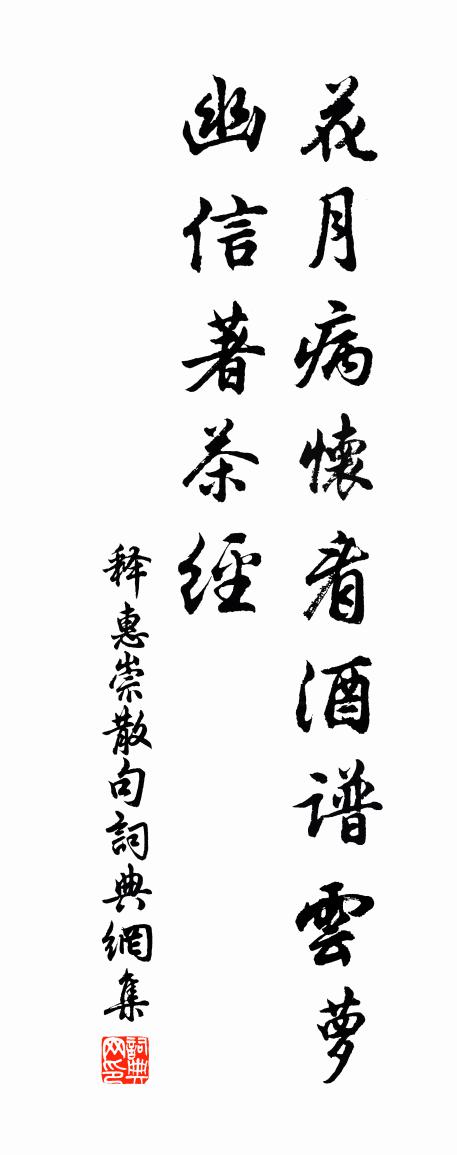 花月病懷看酒譜雲萝
幽信著茶經
释惠崇散句詞典網集
詞典网印